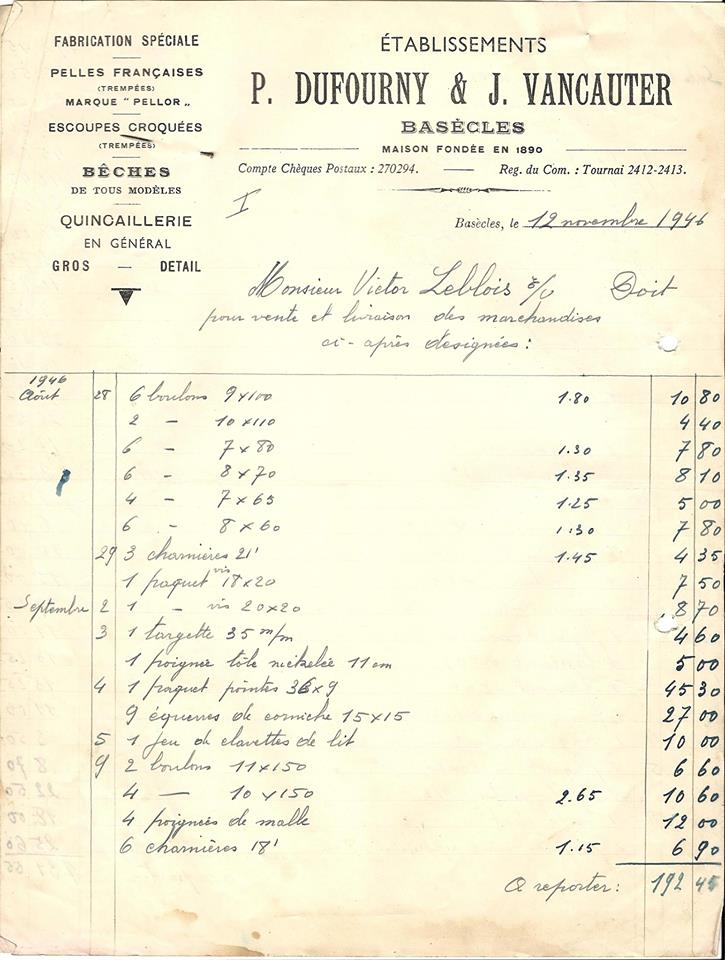 FABRICATION SPÉCIALE
PELLES FRANÇAISES
(TREMPÉES)
MARQUE "PELLOR„
ESCOUPES CROQUÉES
(TREMPÉES)
BÊCHES
DE TOUS MODÈLES
QUINCAILLERIE
EN GÉNÉRAL
GROS — DETAIL
ÉTABLISSEMENTS
P. DUFOURNY & J. VANCAUTER
BASÈCLES
MAISON FONDÉE EN 1890
Compte Chèques Postaux : 270294. — Reg. du Com. : Tournai 2412-2413.
I
Basècles, le 12 novembre 1946
Monsieur Victor Leblois Doit
pour vente et livraison des marchandises
ci-après designées :
1946
Août 28 6 boulons 9x100 1.80 10 80
2 — 10x110 4 40
6 — 7x80 1.30 7 80
6 — 8x70 1.35 8 10
4 — 7x65 1.25 5 00
6 — 8x60 1.30 7 80
29 3 charnières 21' 1.45 4 35
1 paquet vis 18x20 7 50
Septembre 2 1 — vis 20x20 8 70
3 1 targette 35 m/m 4 60
1 poignée tôle nickelée 11 cm 5 00
4 1 paquet pointes 36x9 45 30
9 équerres de corniche 15x15 27 00
5 1 jeu de clavettes de lit 10 00
9 2 boulons 11x150 6 60
4 — 10x150 2.65 10 60
4 poignées de malle 12 00
6 charnières 18' 1.15 6 90
A reporter : 192 45